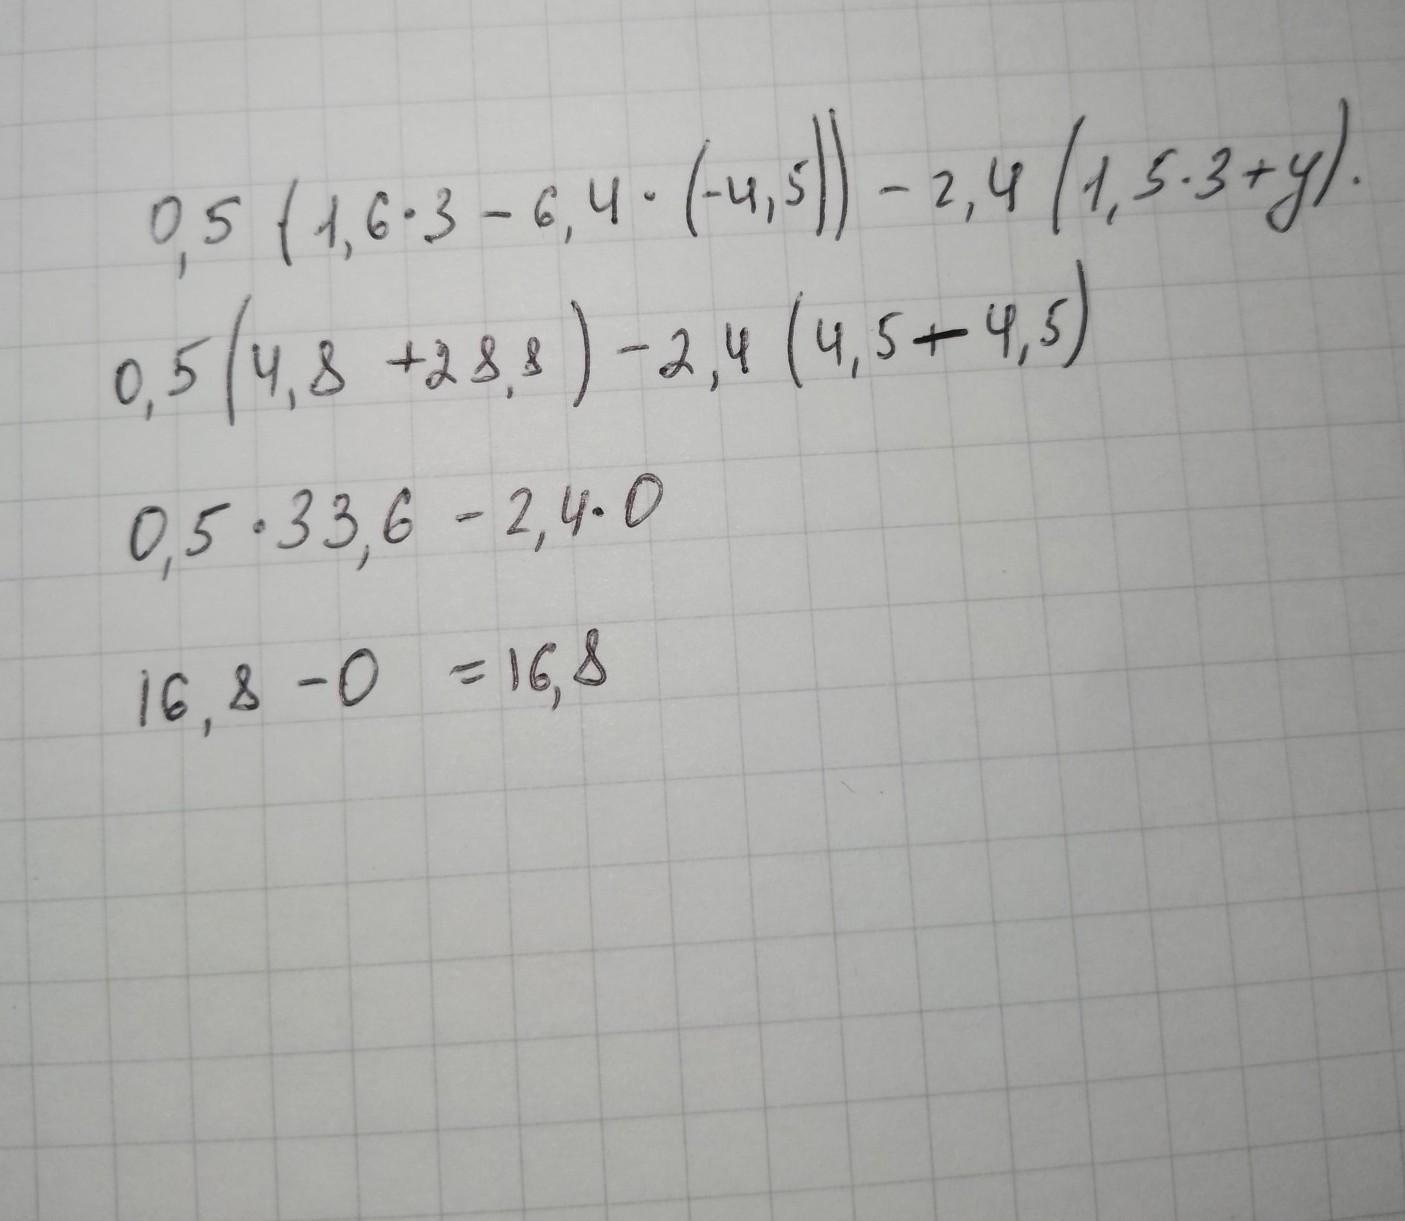 0,5 (1,6·3 - 6,4 · (-4,5)) - 2,4 (1,5·3+y).
0,5 (4,8 +28,8) - 2,4 (4,5 + 4,5)
0,5 · 33,6 - 2,4 · 0
16,8 - 0 = 16,8